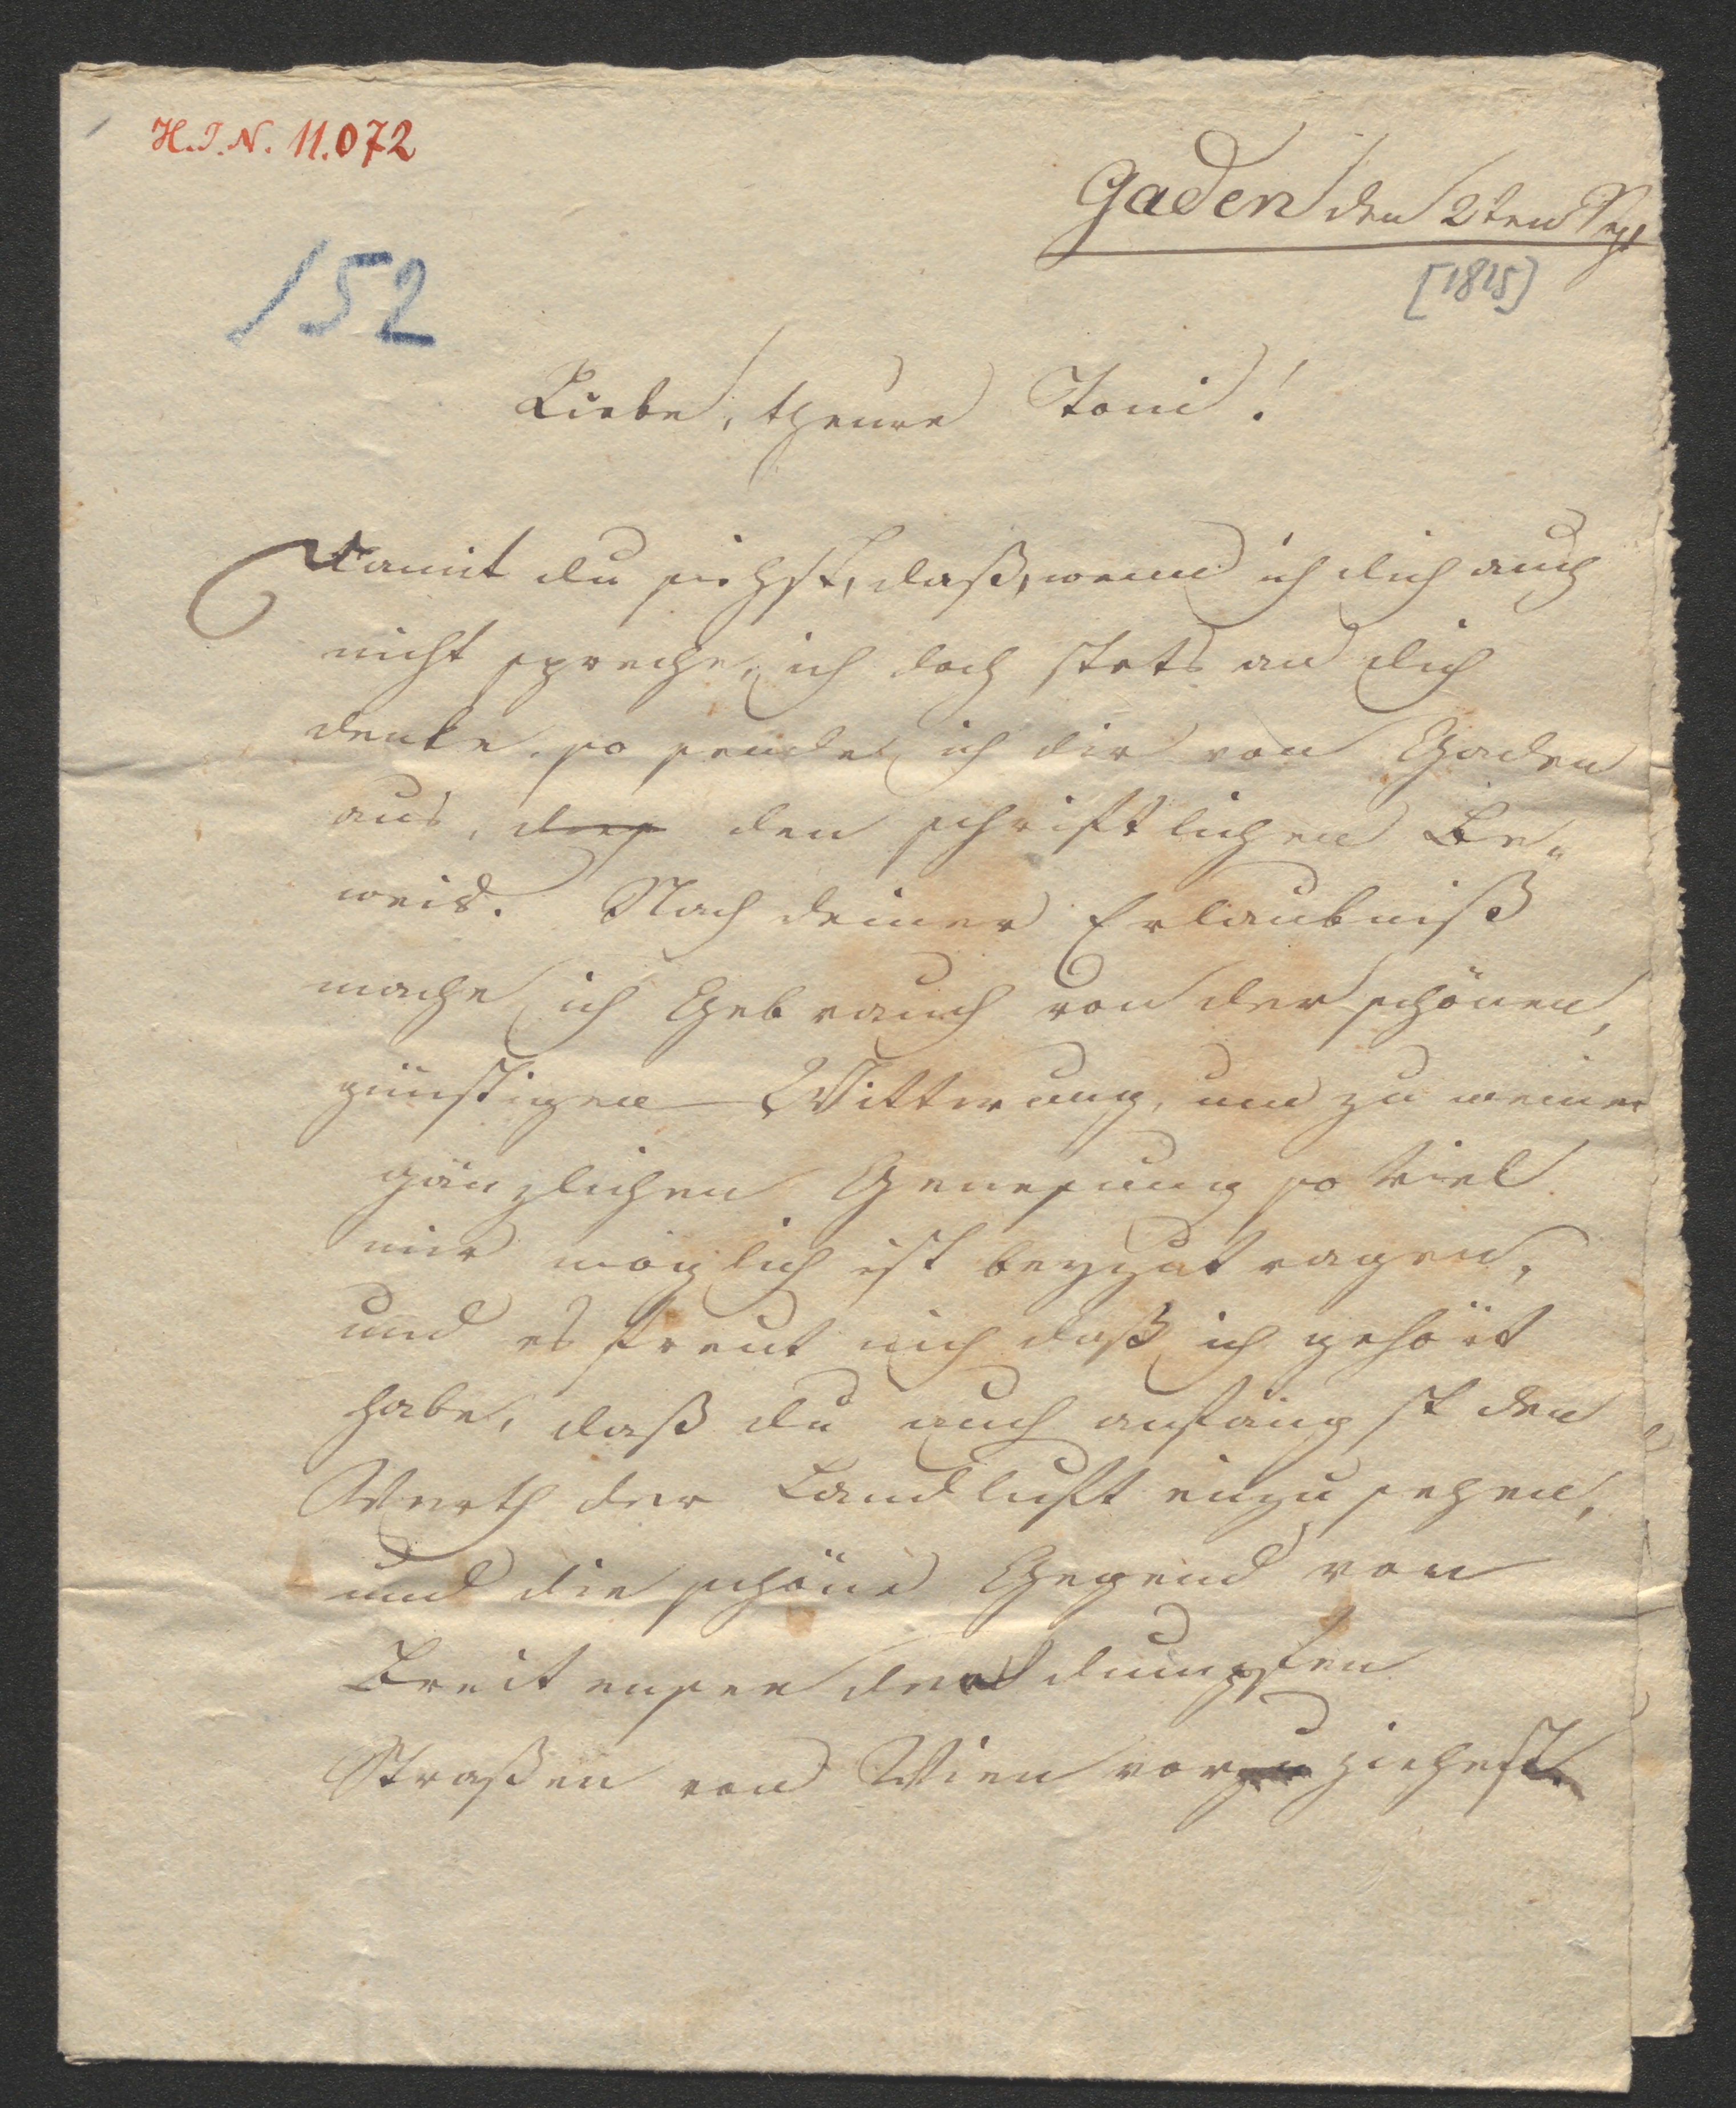 H.I.N. 11.072
Gaden den 2ten Sep
[1815]
152
Liebe, theure Toni!
Damit du siehst, daß, wenn ich dich auch
nicht spreche, ich doch stets an dich
denke, so sende ich dir von Gaden
aus, den schriftlichen Be„
weis. Nach deiner Erlaubniß
mache ich Gebrauch von der schönen,
günstigen Witterung, um zu meiner
gänzlichen Genesung so viel
mir möglich ist beyzutragen,
und es freut mich daß ich gehört
habe, daß du auch anfängst den
Werth der Landluft einzusehen,
und die schöne Gegend von
Breitensee den dumpfen
Straßen von Wien vorziehest.